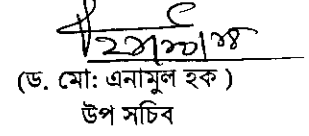 (ড. মো: এনামুল হক )
উপ সচিব